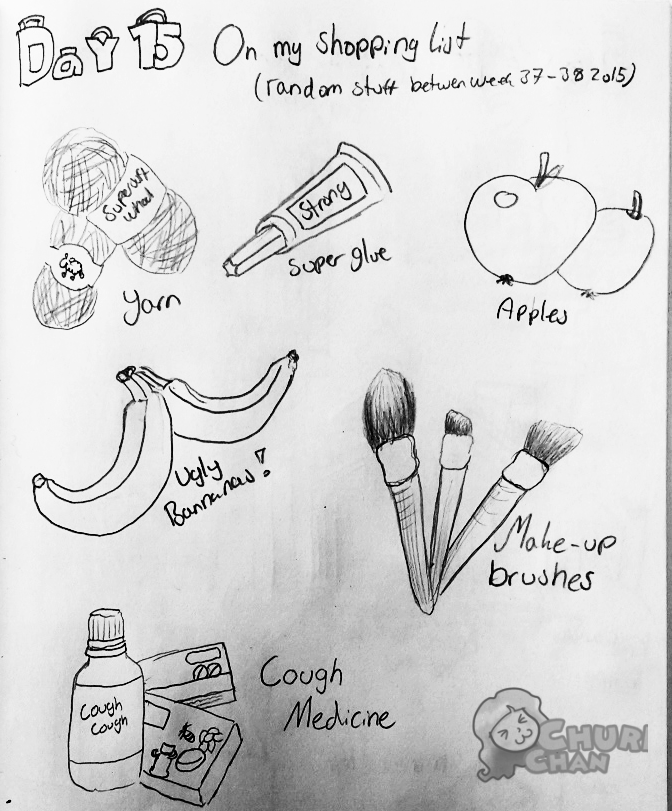 DaY 15 On my shopping list
(random stuff betwen week 37-38 2015)
Supersoft
Wool
Strong
Yarn
Super glue
Apples
Ugly
Bannanas!
Make-up
brushes
Cough
Cough
Cough
Medicine
CHURI
CHAN